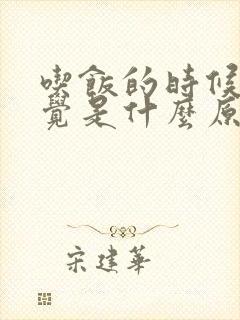 喫飯的時候
覺是什麼原
宋建華